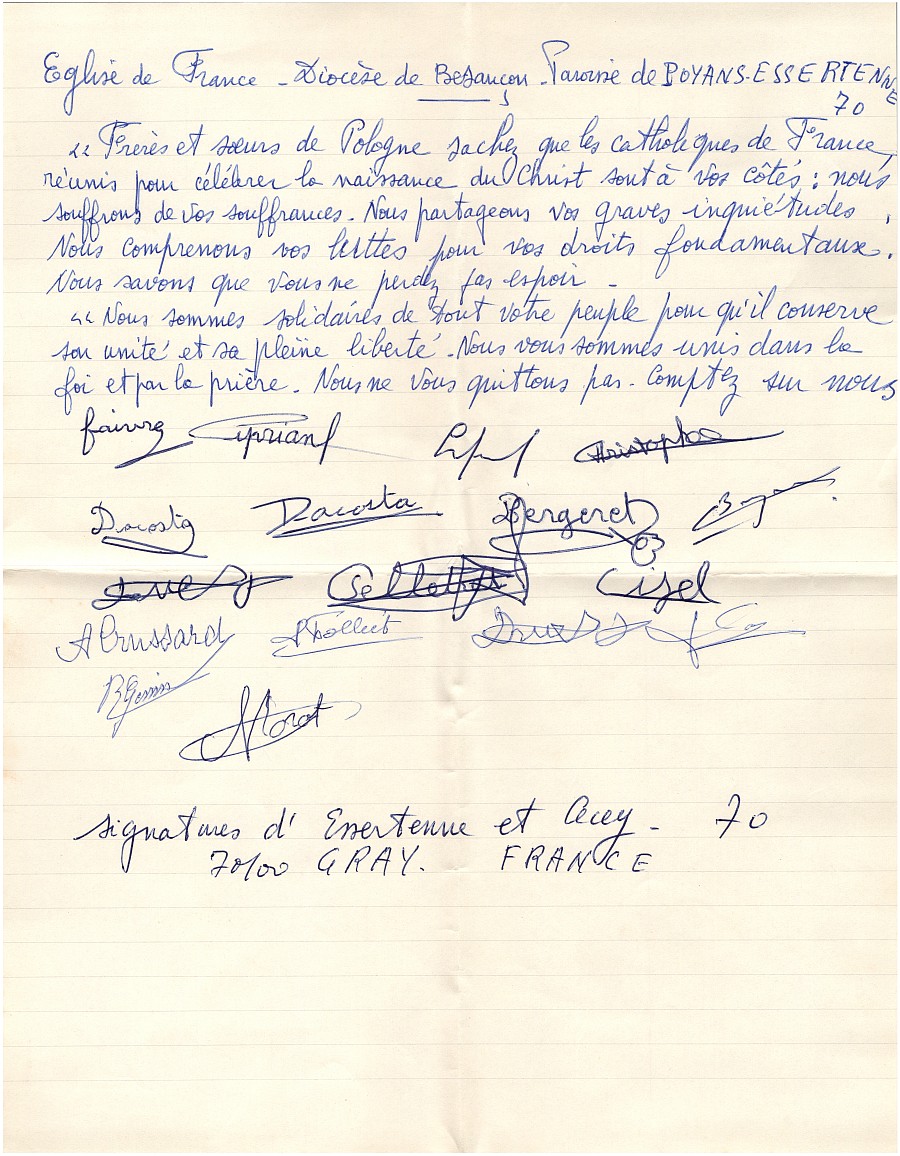 Eglise de France - Diocèse de Besançon - Paroisse de BOYANS-ESSERTENNE
70
<< Frères et sœurs de Pologne sachez que les catholiques de France,
réunis pour célébrer la naissance du Christ sont à vos côtés : nous
souffrons de vos souffrances. Nous partageons vos graves inquiétudes.
Nous comprenons vos luttes pour vos droits fondamentaux.
Nous savons que vous ne perdez pas espoir -
<< Nous sommes solidaires de tout votre peuple pour qu'il conserve
son unité et sa pleine liberté. Nous vous sommes unis dans la
foi et par la prière. Nous ne vous quittons pas. Comptez sur nous
faivre Cyprian Christophe
Dacosta Dacosta Bergeret
Cisel
A Crussard
Morot
signatures d' Essertenne et Cecey - 70
70100 GRAY. FRANCE